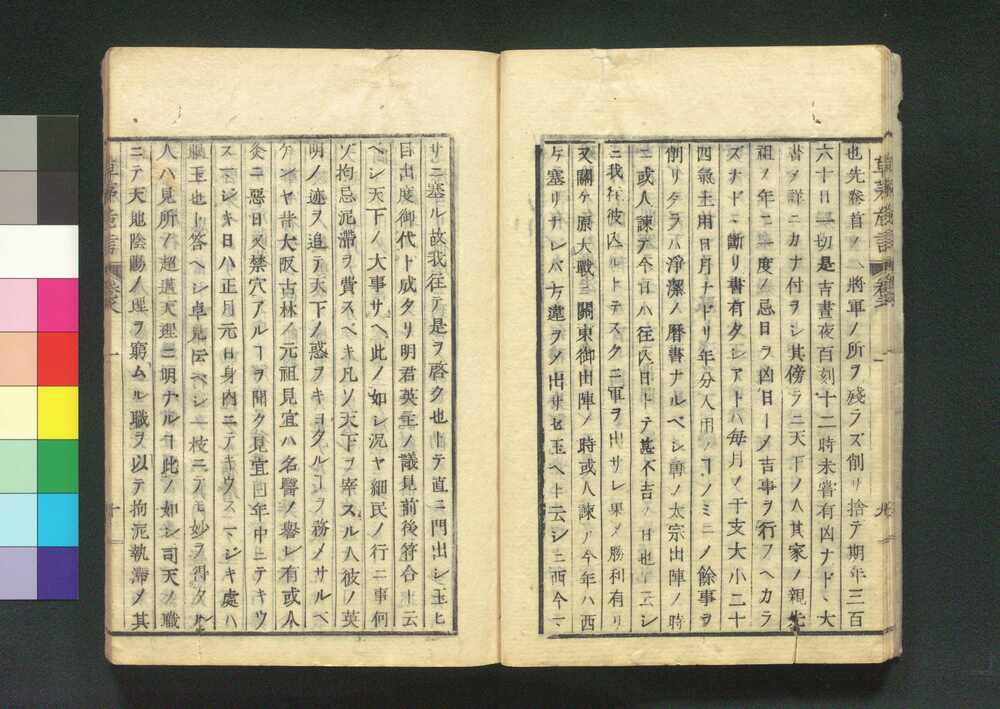 也先卷首ノ﹅將軍ノ所ヲ殘ラズ削リ捨テ期年三百
六十日一切是吉晝夜百刻十二時未嘗有凶ナド﹅大
書ノ詳ニカナ付ヲシ其傍ラニ天下ノ人其家ノ親先
祖ノ年ニ一度ノ忌日ヲ凶日ーメ吉事ヲ行フヘカラ
ズナド﹅斷リ書有タシアトハ毎月ノ干支大小二十
四氣土用日月ナドリ年分入用ノヿノミニノ餘事ヲ
削リタラバ淨潔ノ曆書ナルベシ劓ノ太宗出陣ノ時
ニ或人諫テ今日ハ往亡日トテ甚不吉ノ日也ト云シ
ニ我往彼亡トテスクニ軍ヲ出サレ果メ勝利有リ
又關ケ原大戰ニ關東御出陣ノ時或人諫テ今年ハ西
ケ塞リナレバ方違ヲメ出サセ玉ヘト云シニ西今ニ
サニ塞ル故我往テ是ヲ啓ク也トテ直ニ門出シ玉ヒ
目出度御代ト成タリ明君英主ノ議見前後符合ト云
ベシ天下ノ大事サヘ此ノ如シ況ヤ細民ノ行ニ事何
ソ拘忌泥滯ヲ費スベキ凡ソ天下ヲ宰スル人彼ノ英
明ノ迹ヲ追テ天下ノ惑ヲキヨクルヿヲ務メサルベ
ケンヤ昔大阪古林ノ元祖見宜ハ名醫ノ譽レ有或人
灸ニ惡日又禁穴アルヿヲ聞ク見宜曰年中ニテキウ
スマジキ日ハ正月元日身內ニテキウスマジキ處ハ
眼玉也ト答ヘシ卓見伝ベシ一枝ニテモ妙ヲ得タル
人ハ見所ノ超邁天理ニ明ナルヿ此ノ如シ司天ノ職
ニテ天地陰陽ノ理ヲ窮ムル職ヲ以テ拘泥執滯メ其